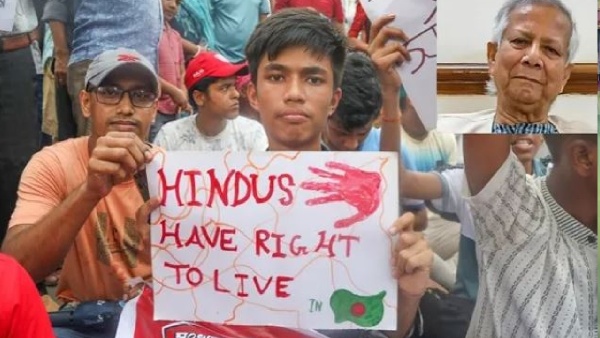 HINDUS
HAVE RIGHT
TO LIVE
IN